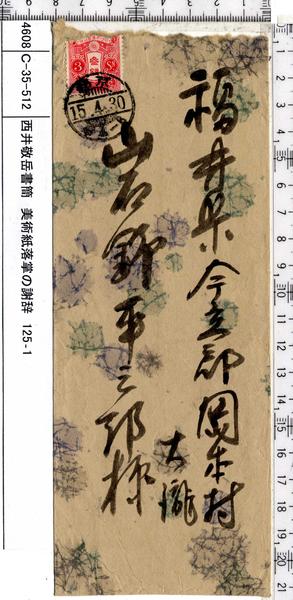 4608 C-35-512 西井敬岳書簡 美術紙落掌の謝辞 125-1
福井県今立郡岡本村
大瀧
岩野平三郎様
15.4.30